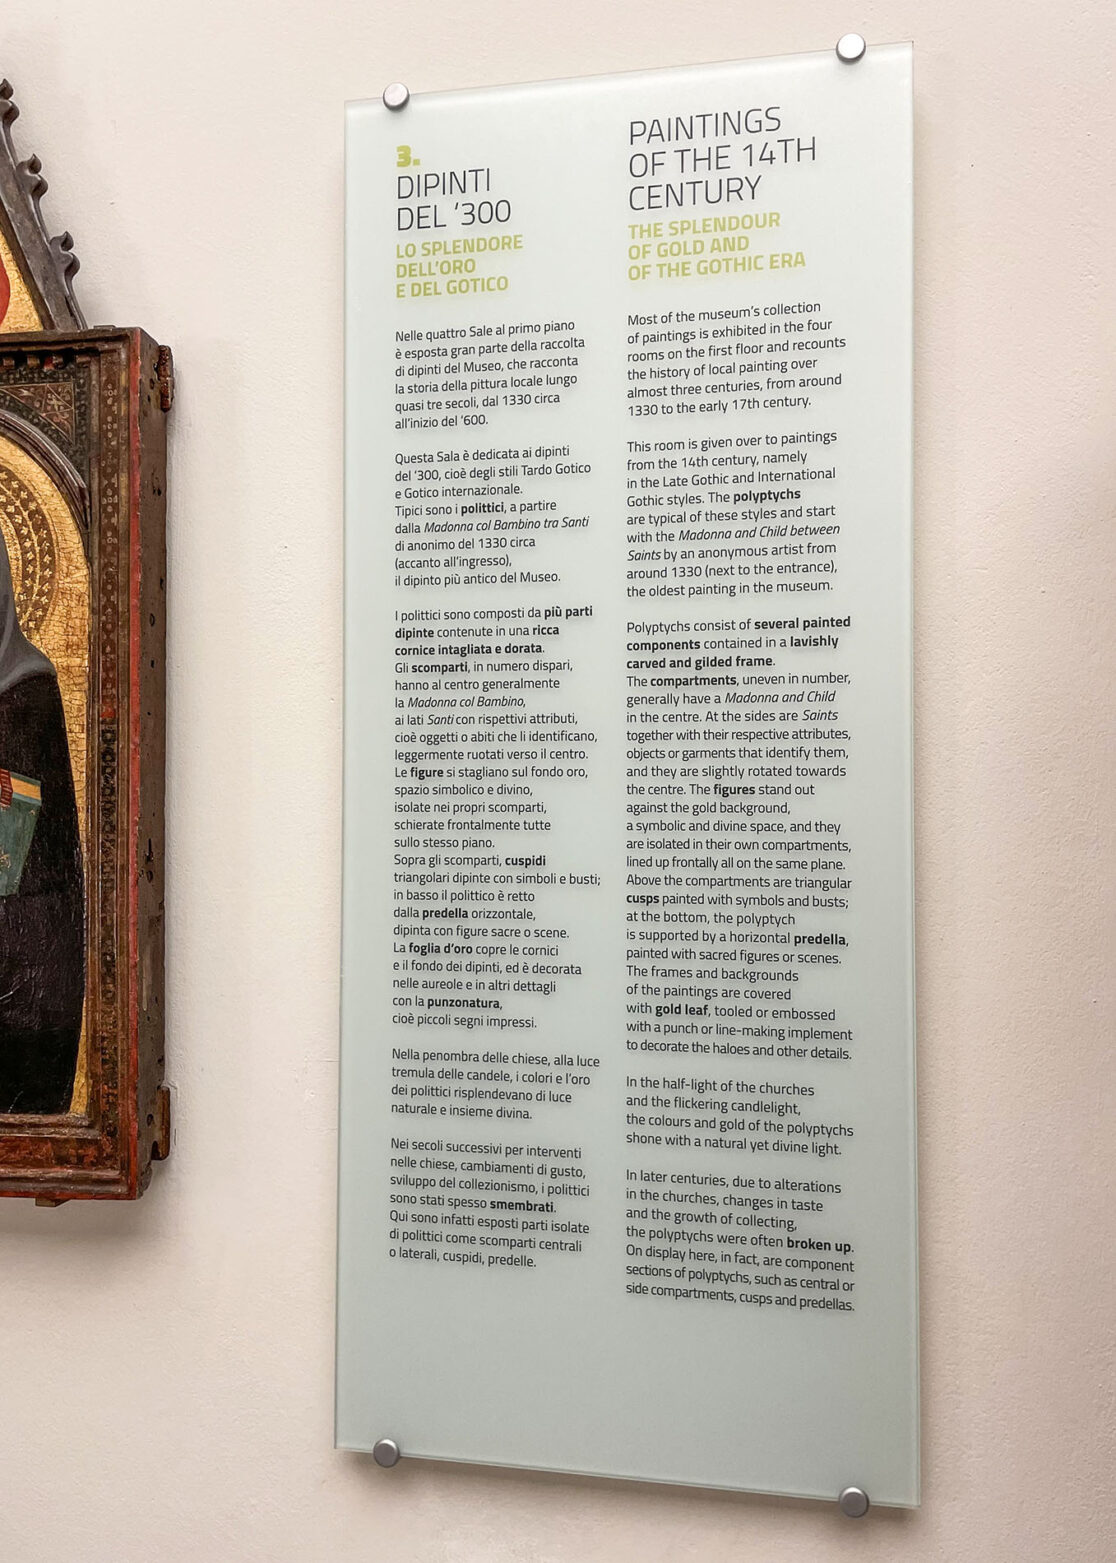 3.
DIPINTI
DEL ‘300
LO SPLENDORE
DELL’ORO
E DEL GOTICO
Nelle quattro Sale al primo piano
è esposta gran parte della raccolta
di dipinti del Museo, che racconta
la storia della pittura locale lungo
quasi tre secoli, dal 1330 circa
all’inizio del ‘600.
Questa Sala è dedicata ai dipinti
del ‘300, cioè degli stili Tardo Gotico
e Gotico internazionale.
Tipici sono i polittici, a partire
dalla Madonna col Bambino tra Santi
di anonimo del 1330 circa
(accanto all’ingresso),
il dipinto più antico del Museo.
I polittici sono composti da più parti
dipinte contenute in una ricca
cornice intagliata e dorata.
Gli scomparti, in numero dispari,
hanno al centro generalmente
la Madonna col Bambino,
ai lati Santi con rispettivi attributi,
cioè oggetti o abiti che li identificano,
leggermente ruotati verso il centro.
Le figure si stagliano sul fondo oro,
spazio simbolico e divino,
isolate nei propri scomparti,
schierate frontalmente tutte
sullo stesso piano.
Sopra gli scomparti, cuspidi
triangolari dipinte con simboli e busti;
in basso il polittico è retto
dalla predella orizzontale,
dipinta con figure sacre o scene.
La foglia d’oro copre le cornici
e il fondo dei dipinti, ed è decorata
nelle aureole e in altri dettagli
con la punzonatura,
cioè piccoli segni impressi.
Nella penombra delle chiese, alla luce
tremula delle candele, i colori e l’oro
dei polittici risplendevano di luce
naturale e insieme divina.
Nei secoli successivi per interventi
nelle chiese, cambiamenti di gusto,
sviluppo del collezionismo, i polittici
sono stati spesso smembrati.
Qui sono infatti esposti parti isolate
di polittici come scomparti centrali
o laterali, cuspidi, predelle.
PAINTINGS
OF THE 14TH
CENTURY
THE SPLENDOUR
OF GOLD AND
OF THE GOTHIC ERA
Most of the museum’s collection
of paintings is exhibited in the four
rooms on the first floor and recounts
the history of local painting over
almost three centuries, from around
1330 to the early 17th century.
This room is given over to paintings
from the 14th century, namely
in the Late Gothic and International
Gothic styles. The polyptychs
are typical of these styles and start
with the Madonna and Child between
Saints by an anonymous artist from
around 1330 (next to the entrance),
the oldest painting in the museum.
Polyptychs consist of several painted
components contained in a lavishly
carved and gilded frame.
The compartments, uneven in number,
generally have a Madonna and Child
in the centre. At the sides are Saints
together with their respective attributes,
objects or garments that identify them,
and they are slightly rotated towards
the centre. The figures stand out
against the gold background,
a symbolic and divine space, and they
are isolated in their own compartments,
lined up frontally all on the same plane.
Above the compartments are triangular
cusps painted with symbols and busts;
at the bottom, the polyptych
is supported by a horizontal predella,
painted with sacred figures or scenes.
The frames and backgrounds
of the paintings are covered
with gold leaf, tooled or embossed
with a punch or line-making implement
to decorate the haloes and other details.
In the half-light of the churches
and the flickering candlelight,
the colours and gold of the polyptychs
shone with a natural yet divine light.
In later centuries, due to alterations
in the churches, changes in taste
and the growth of collecting,
the polyptychs were often broken up.
On display here, in fact, are component
sections of polyptychs, such as central or
side compartments, cusps and predellas.